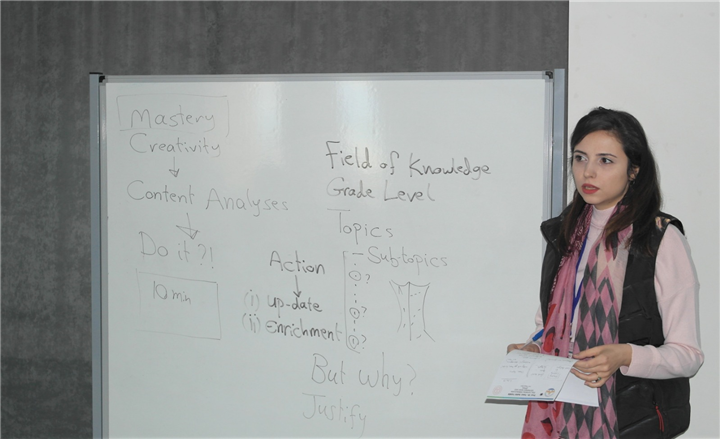 Mastery
Creativity
Content Analyses
Do it?!
10 min
Field of Knowledge
Grade Level
Topics
Sub-topics
Action
(i) up-date
(ii) Enrichment
?
?
?
But why?
Justify